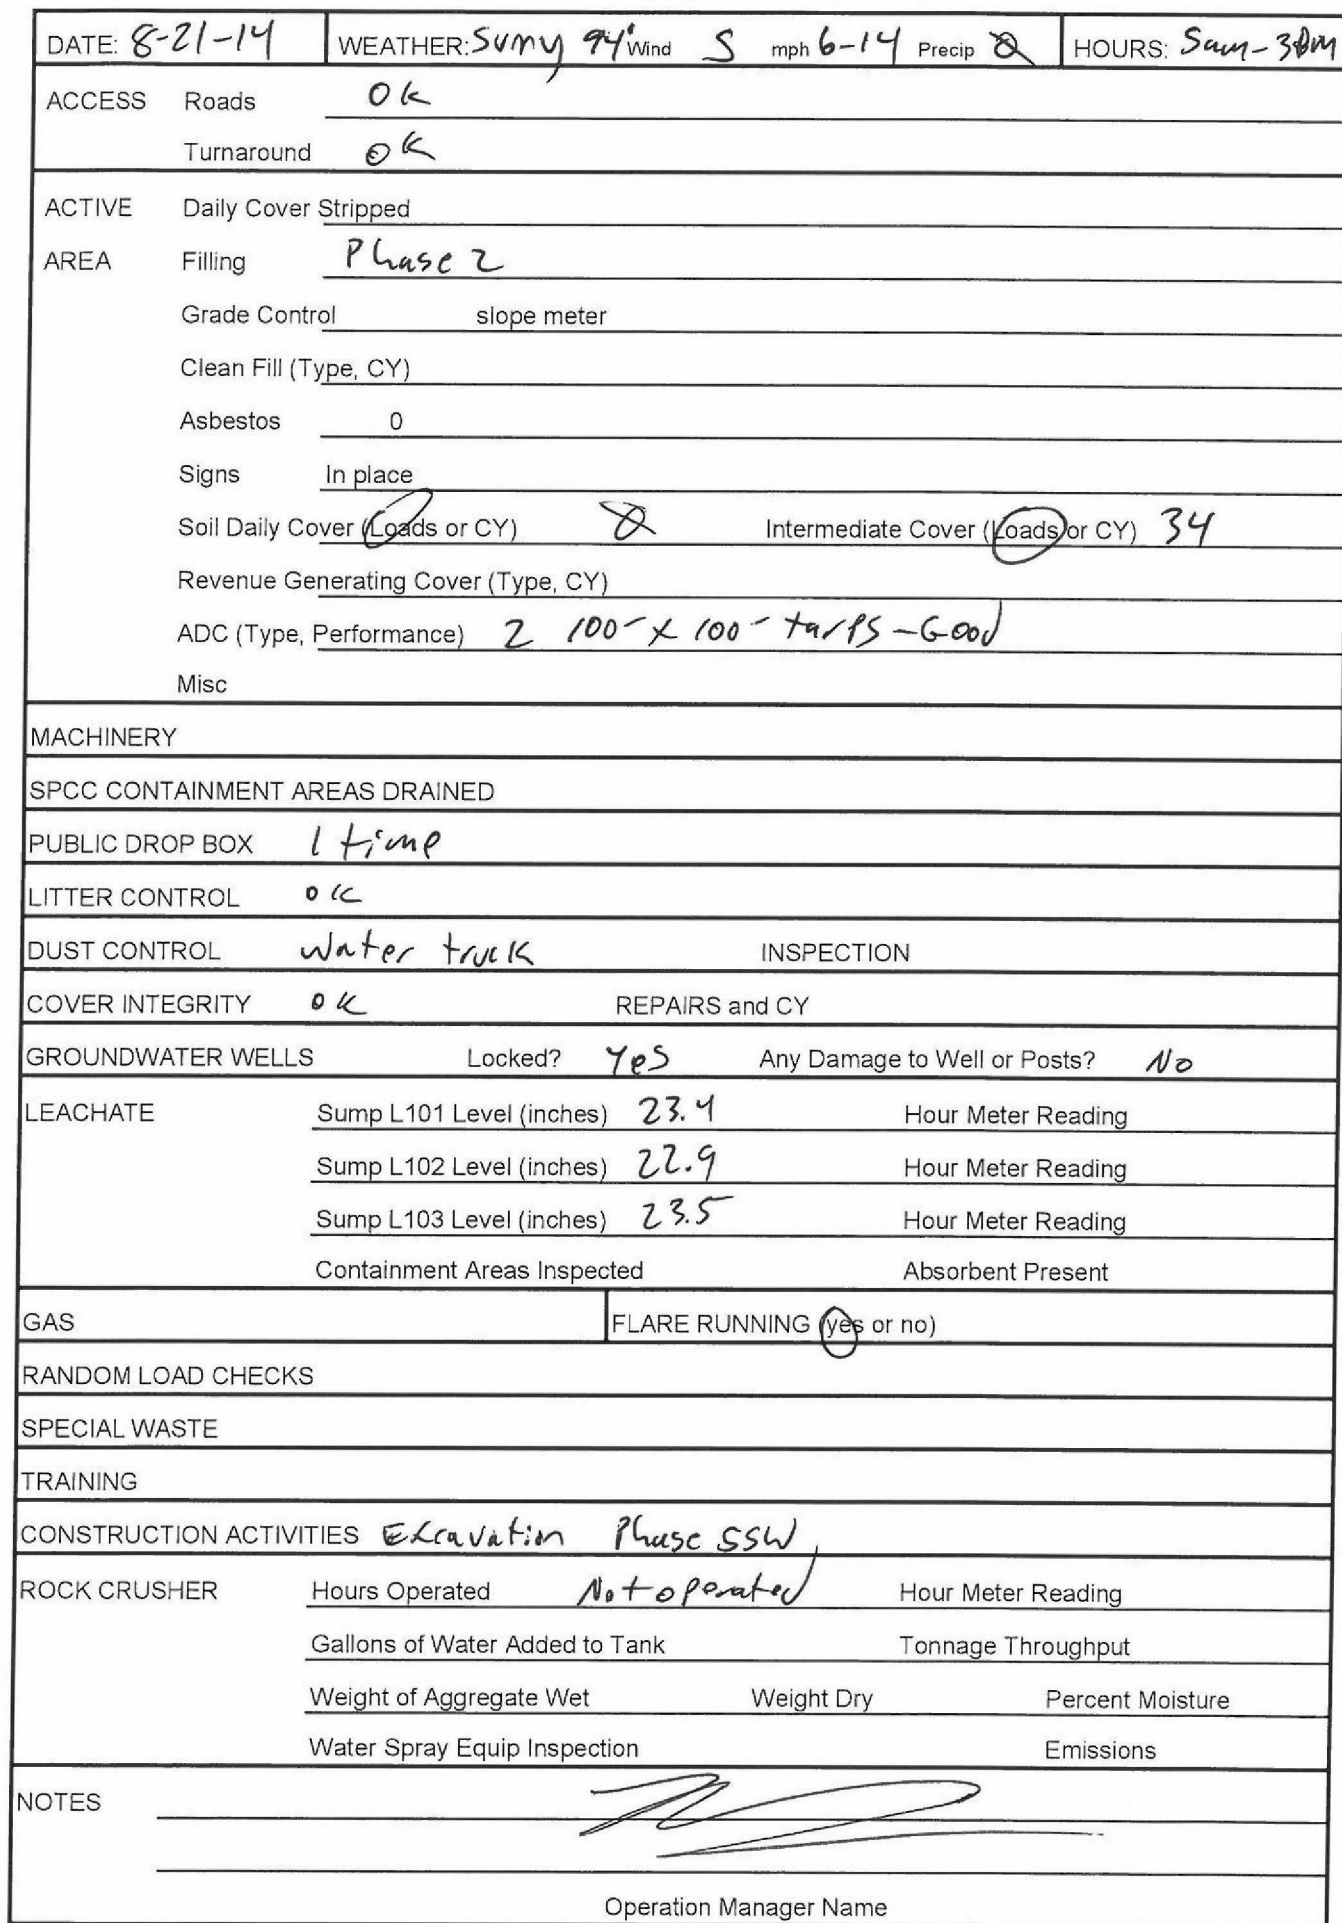 DATE: 8-21-14 WEATHER: Sunny 94° Wind S mph 6-14 Precip 0 HOURS: 5am-3pm
ACCESS Roads OK
Turnaround OK
ACTIVE Daily Cover Stripped
AREA Filling Phase 2
Grade Control slope meter
Clean Fill (Type, CY)
Asbestos 0
Signs In place
Soil Daily Cover (Loads or CY) 0 Intermediate Cover (Loads or CY) 34
Revenue Generating Cover (Type, CY)
ADC (Type, Performance) 2 100' x 100' tarps - Good
Misc
MACHINERY
SPCC CONTAINMENT AREAS DRAINED
PUBLIC DROP BOX 1 time
LITTER CONTROL OK
DUST CONTROL Water truck INSPECTION
COVER INTEGRITY OK REPAIRS and CY
GROUNDWATER WELLS Locked? Yes Any Damage to Well or Posts? No
LEACHATE Sump L101 Level (inches) 23.4 Hour Meter Reading
Sump L102 Level (inches) 22.9 Hour Meter Reading
Sump L103 Level (inches) 23.5 Hour Meter Reading
Containment Areas Inspected Absorbent Present
GAS FLARE RUNNING (yes or no)
RANDOM LOAD CHECKS
SPECIAL WASTE
TRAINING
CONSTRUCTION ACTIVITIES Excavation Phase 5SW
ROCK CRUSHER Hours Operated Not operated Hour Meter Reading
Gallons of Water Added to Tank Tonnage Throughput
Weight of Aggregate Wet Weight Dry Percent Moisture
Water Spray Equip Inspection Emissions
NOTES
Operation Manager Name